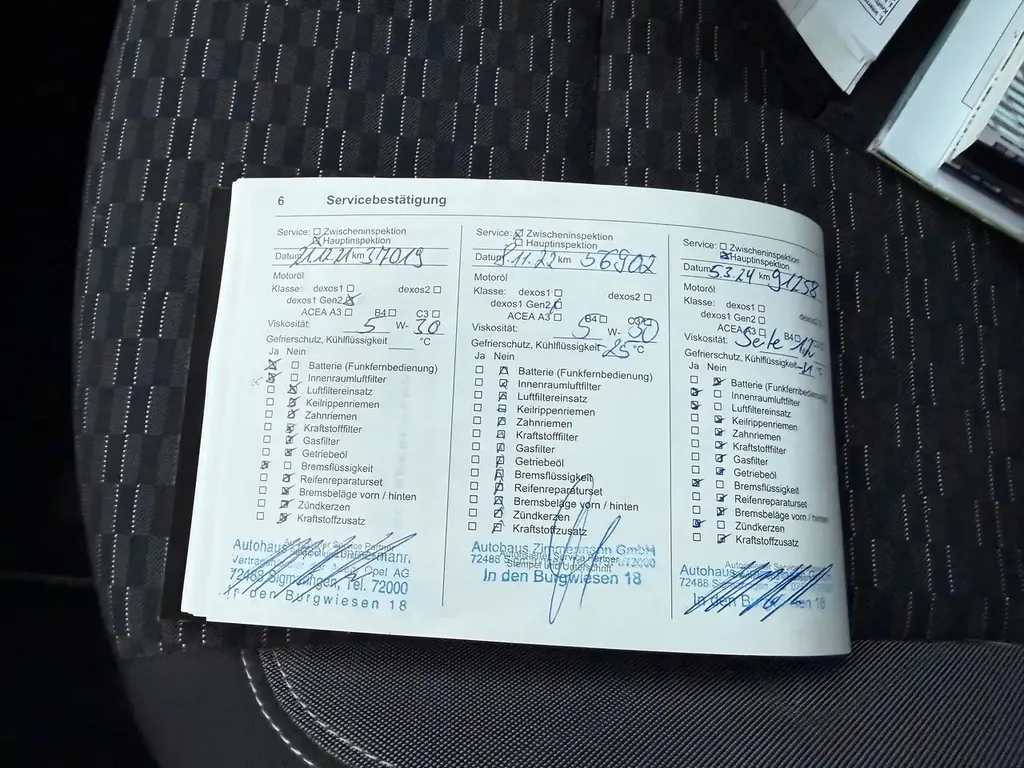 6 Servicebestätigung
Service: Zwischeninspektion
Hauptinspektion
Datum km 37019
Motoröl
Klasse: dexos1 dexos2
dexos1 Gen2
ACEA A3 B4 C3
Viskosität: 5 W- 30
Gefrierschutz, Kühlflüssigkeit °C
Ja Nein
Batterie (Funkfernbedienung)
Innenraumluftfilter
Luftfiltereinsatz
Keilrippenriemen
Zahnriemen
Kraftstofffilter
Gasfilter
Getriebeöl
Bremsflüssigkeit
Reifenreparaturset
Bremsbeläge vorn / hinten
Zündkerzen
Kraftstoffzusatz
Autohaus Zimmermann
Opel AG
72488 Sigmaringen, Tel. 72000
In den Burgwiesen 18
Service: Zwischeninspektion
Hauptinspektion
Datum .11.22 km 56902
Motoröl
Klasse: dexos1 dexos2
dexos1 Gen2
ACEA A3 B4 C3
Viskosität: 5 W- 30
Gefrierschutz, Kühlflüssigkeit -25 °C
Ja Nein
Batterie (Funkfernbedienung)
Innenraumluftfilter
Luftfiltereinsatz
Keilrippenriemen
Zahnriemen
Kraftstofffilter
Gasfilter
Getriebeöl
Bremsflüssigkeit
Reifenreparaturset
Bremsbeläge vorn / hinten
Zündkerzen
Kraftstoffzusatz
Autohaus Zimmermann GmbH
Autorisierter Service Partner
72488
Stempel und Unterschrift
In den Burgwiesen 18
Service: Zwischeninspektion
Hauptinspektion
Datum 5.3.24 km 91258
Motoröl
Klasse: dexos1
dexos1 Gen2
ACEA A3 B4
Viskosität: Seite 12
Gefrierschutz, Kühlflüssigkeit
Ja Nein
Batterie (Funkfernbedienung)
Innenraumluftfilter
Luftfiltereinsatz
Keilrippenriemen
Zahnriemen
Kraftstofffilter
Gasfilter
Getriebeöl
Bremsflüssigkeit
Reifenreparaturset
Bremsbeläge vorn / hinten
Zündkerzen
Kraftstoffzusatz
Autohaus
72488
In den 18